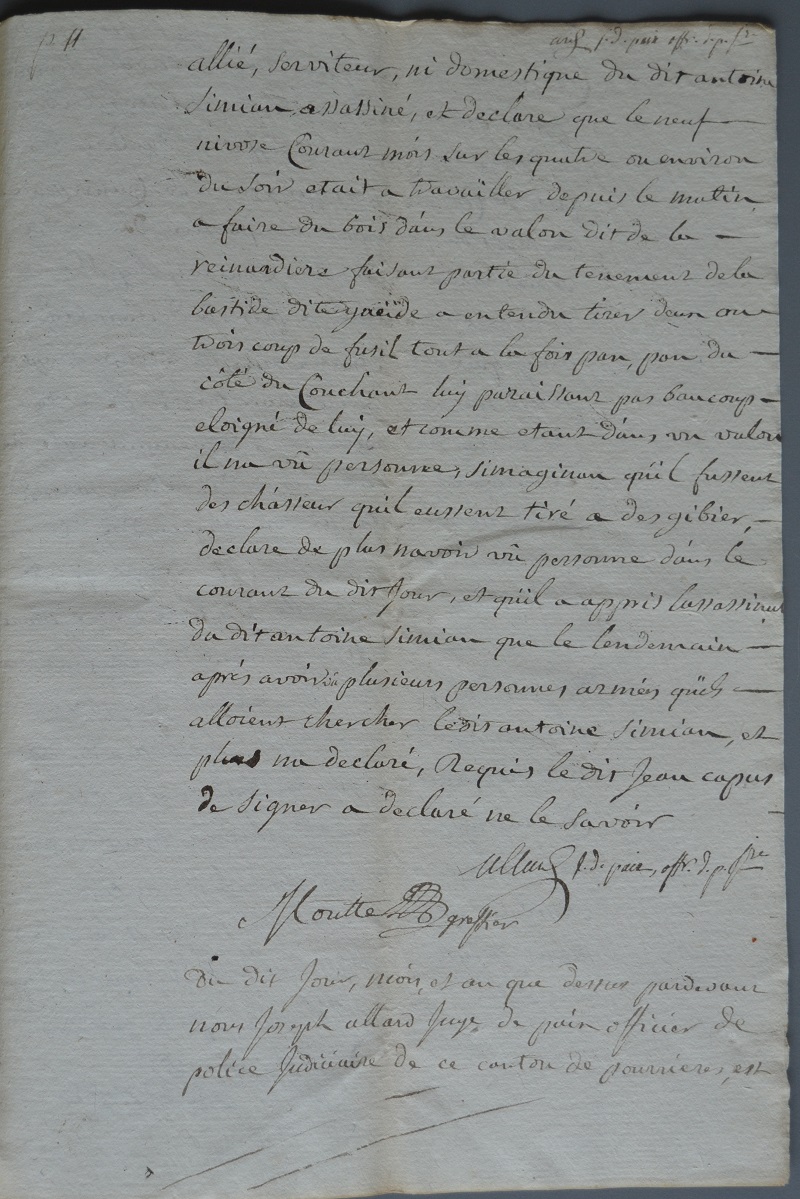 p. 11
j. d. paix off. d. p. jre
allié, serviteur, ni domestique du dit antoine
Simian assassiné, et declare que le neuf —
nivose Courant mois sur les quatre ou environ
du soir etait a travaïller depuis le matin
a faire du bois dans le valon dit de la —
reinardiere faisant partie du tenement de la
bastide dite a entendu tirer deux ou
trois coup de fusil tout a la fois pan, pan du —
côté du Couchant luy paraissant pas beaucoup —
eloigné de luy, et comme etant dans un valon
il na vû personne, simaginan qu'il fussent
des chásseur quil eussent tiré a des gibier, —
declare de plus navoir vû personne dans le
courant du dit Jour, et qu'il a appris lassassinat
du dit antoine Simian que le lendemain —
aprés avoir vu plusieurs personnes armés qu'ils —
alloient chercher ledit antoine Simian, et
plus na declaré, Requis le dit Jean capus
de signer a declaré ne le savoir
allard j. d. paix, off. d. p. jre
Moutte greffier
Du dit Jour, mois, et an que dessus pardevant
nous Joseph allard Juge de paix officier de
police Judiciaire de ce canton de pourrieres, est